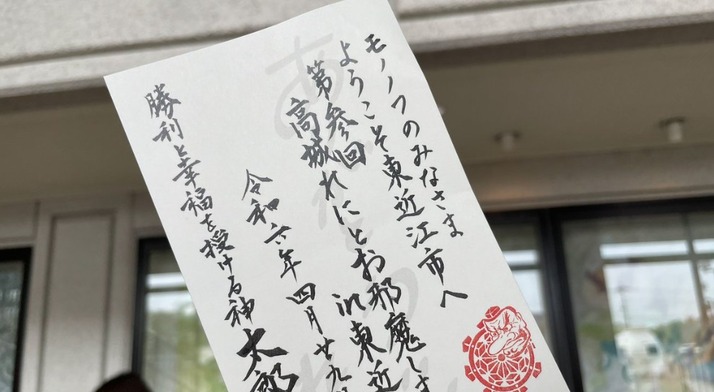 モノノフのみなさま
ようこそ東近江市へ
第参回
高城れにとお邪魔しま
in東近
令和六年四月廿九
勝利と幸福を授ける神
太郎